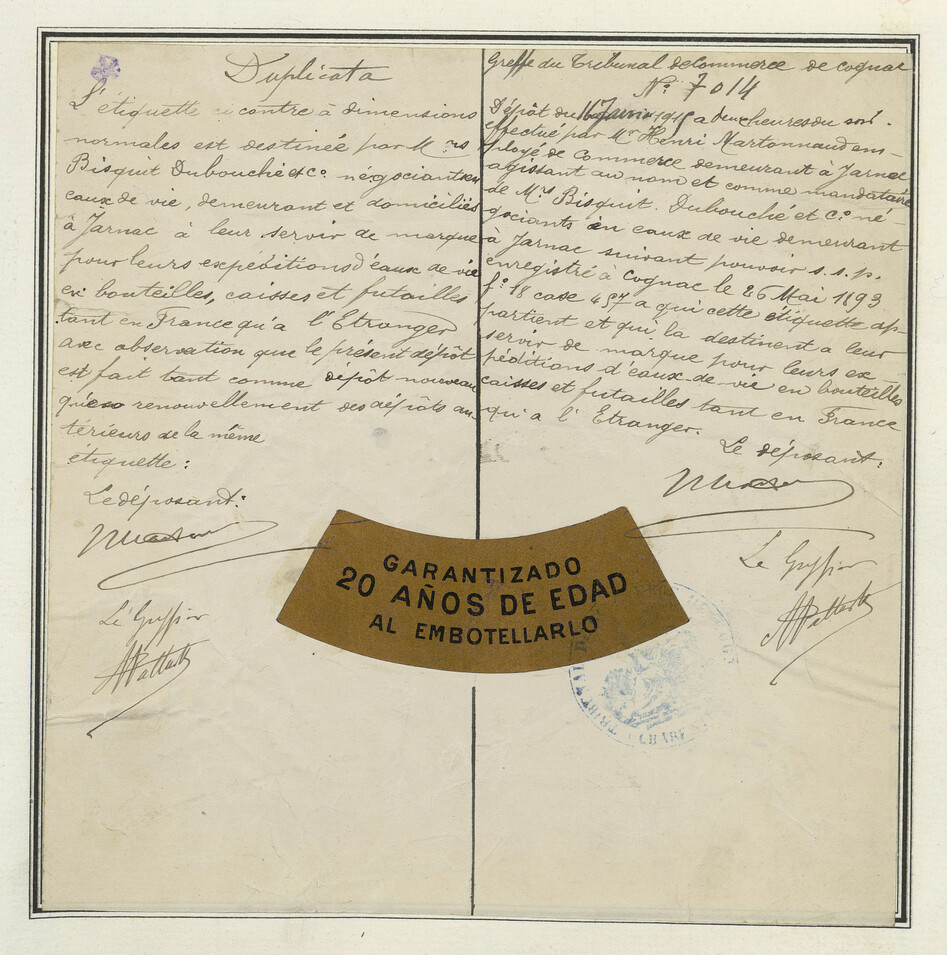 Duplicata
L'étiquette ci contre à dimensions
normales est destinée par M.rs
Bisquit Dubouché et Co. négociants en
eaux de vie, demeurant et domiciliés
à Jarnac à leur servir de marque
pour leurs expéditions d'eaux de vie
en bouteilles, caisses et futailles
tant en France qu'a l'Etranger
avec observation que le présent dépôt
est fait tant comme dépôt nouveau
qu'en renouvellement des dépôts an-
térieurs de la même
étiquette:
Le déposant:
Le Greffier
Greffe du Tribunal de Commerce de cognac
No. 7014
Dépôt du 16 Janvier 1915 a deux heures du soir.
effectué par Mr Henri Martonnaud em-
ployé de Commerce demeurant à Jarnac
agissant au nom et comme mandataire
de M.rs Bisquit. Dubouché et Co. né
gociants en eaux de vie demeurant
à Jarnac suivant pouvoir s.s.p.
enregistré à cognac le 26 Mai 1893
fo. 18 case 457 a qui cette étiquette ap-
partient et qui la destinent a leur
servir de marque pour leurs ex-
péditions d'eaux-de-vie en bouteilles
caisses et futailles tant en France
qu'a l'Etranger.
Le déposant:
Le Greffier
GARANTIZADO
20 AÑOS DE EDAD
AL EMBOTELLARLO